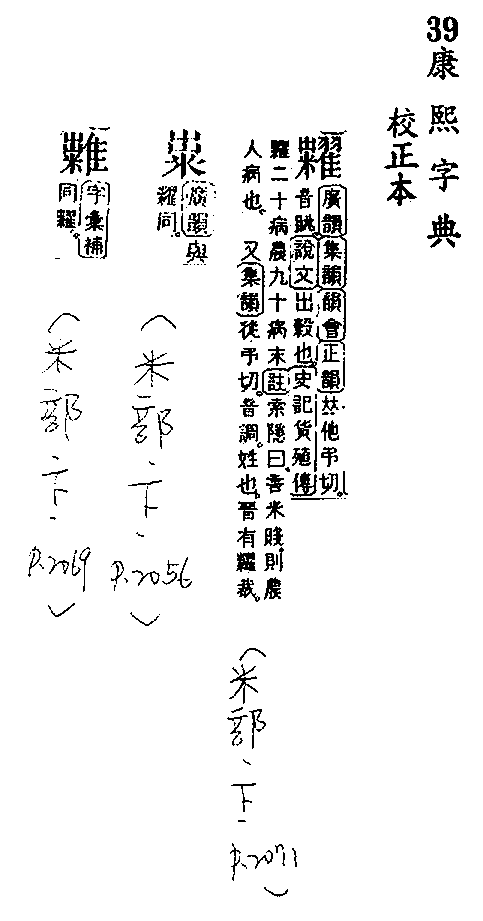 39
康熙字典
校正本
糶
廣韻集韻韻會正韻𠀤他弔切。
音眺說文出穀也。史記貨殖傳
糶二十病農九十病末註索隱曰言米賤則農
人病也。又集韻徒弔切。音調。姓也。晉有糶裁。
（米部、下、P.2071）
粜
廣韻與
糶同。
（米部、下、P.2056）
字彙補
同糶。
（米部、下、P.2069）